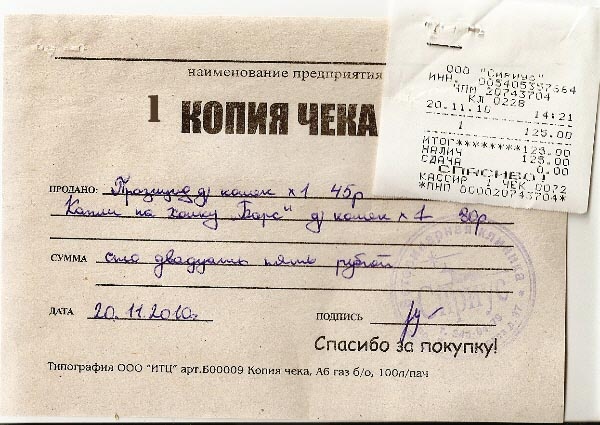 наименование предприятия
1 КОПИЯ ЧЕКА
ПРОДАНО: Празицид д/ кошек х1 45р
Капли на холку "Барс" д/ кошек х1 80р
СУММА сто двадцать пять рублей
ДАТА 20.11.2010г
ПОДПИСЬ
Спасибо за покупку!
Типография ООО "ИТЦ" арт.Б00009 Копия чека, А6 газ б/о, 100л/пач
ООО "Сириус"
ИНН. 005405357564
ЧПМ 20743704
КЛ 0228
20.11.10 14:21
1 125.00
ИТОГ********125.00
НАЛИЧ 125.00
СДАЧА 0.00
СПАСИБО!
КАССИР 1 ЧЕК 0072
*ПНП 000020743704*
ветеринарная клиника
Сириус